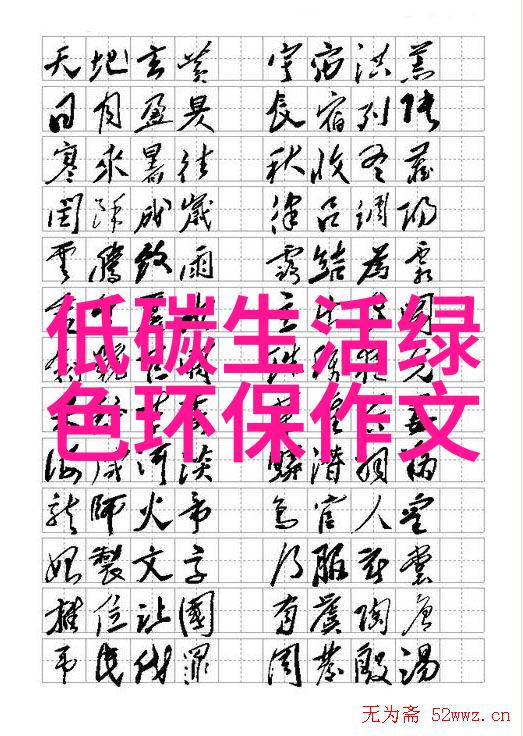 天地玄黄 宇宙洪荒
日月盈昃 辰宿列張
寒來暑往 秋收冬藏
閏餘成歲 律吕調陽
雲騰致雨 露結為霜
低碳生活绿
色环保作文
海咸河淡 鳞潜羽翔
龍師火帝 鳥官人皇
始製文字 乃服衣裳
推位讓國 有虞陶唐
弔民伐罪 周發殷湯
无为斋 52wwz.cn